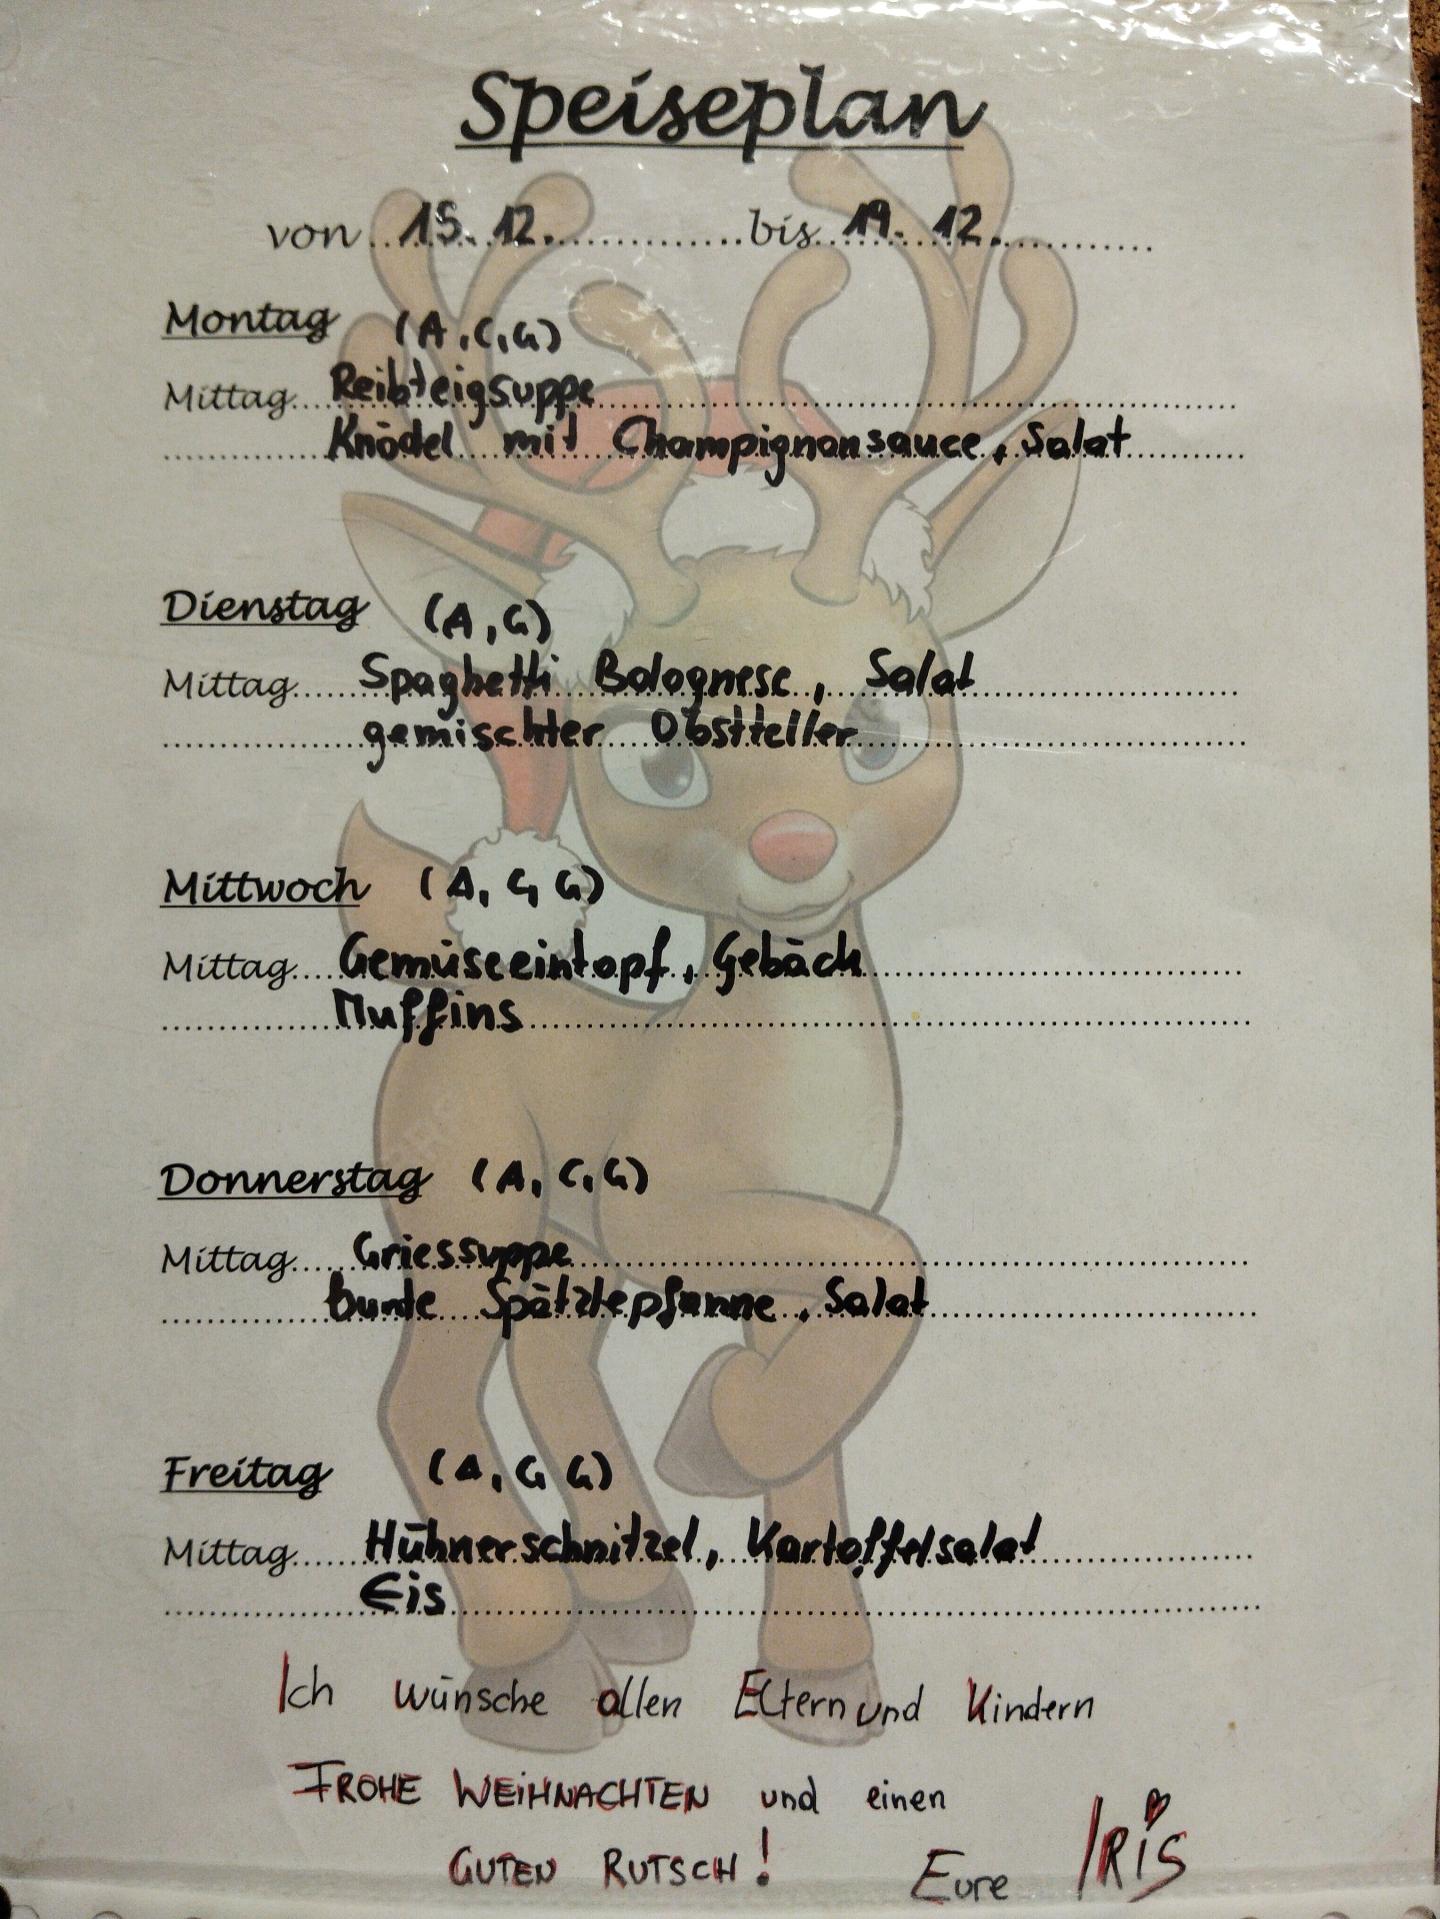 Speiseplan
von 15. 12. bis 19. 12.
Montag (A, C, G)
Mittag Reibteigsuppe
Knödel mit Champignonsauce, Salat
Dienstag (A, G)
Mittag Spaghetti Bolognese, Salat
gemischter Obstteller
Mittwoch (A, C, G)
Mittag Gemüseeintopf, Gebäck
Muffins
Donnerstag (A, C, G)
Mittag Griessuppe
bunte Spätzlepfanne, Salat
Freitag (A, C, G)
Mittag Hühnerschnitzel, Kartoffelsalat
Eis
Ich wünsche allen Eltern und Kindern
FROHE WEIHNACHTEN und einen
GUTEN RUTSCH! Eure IRiS